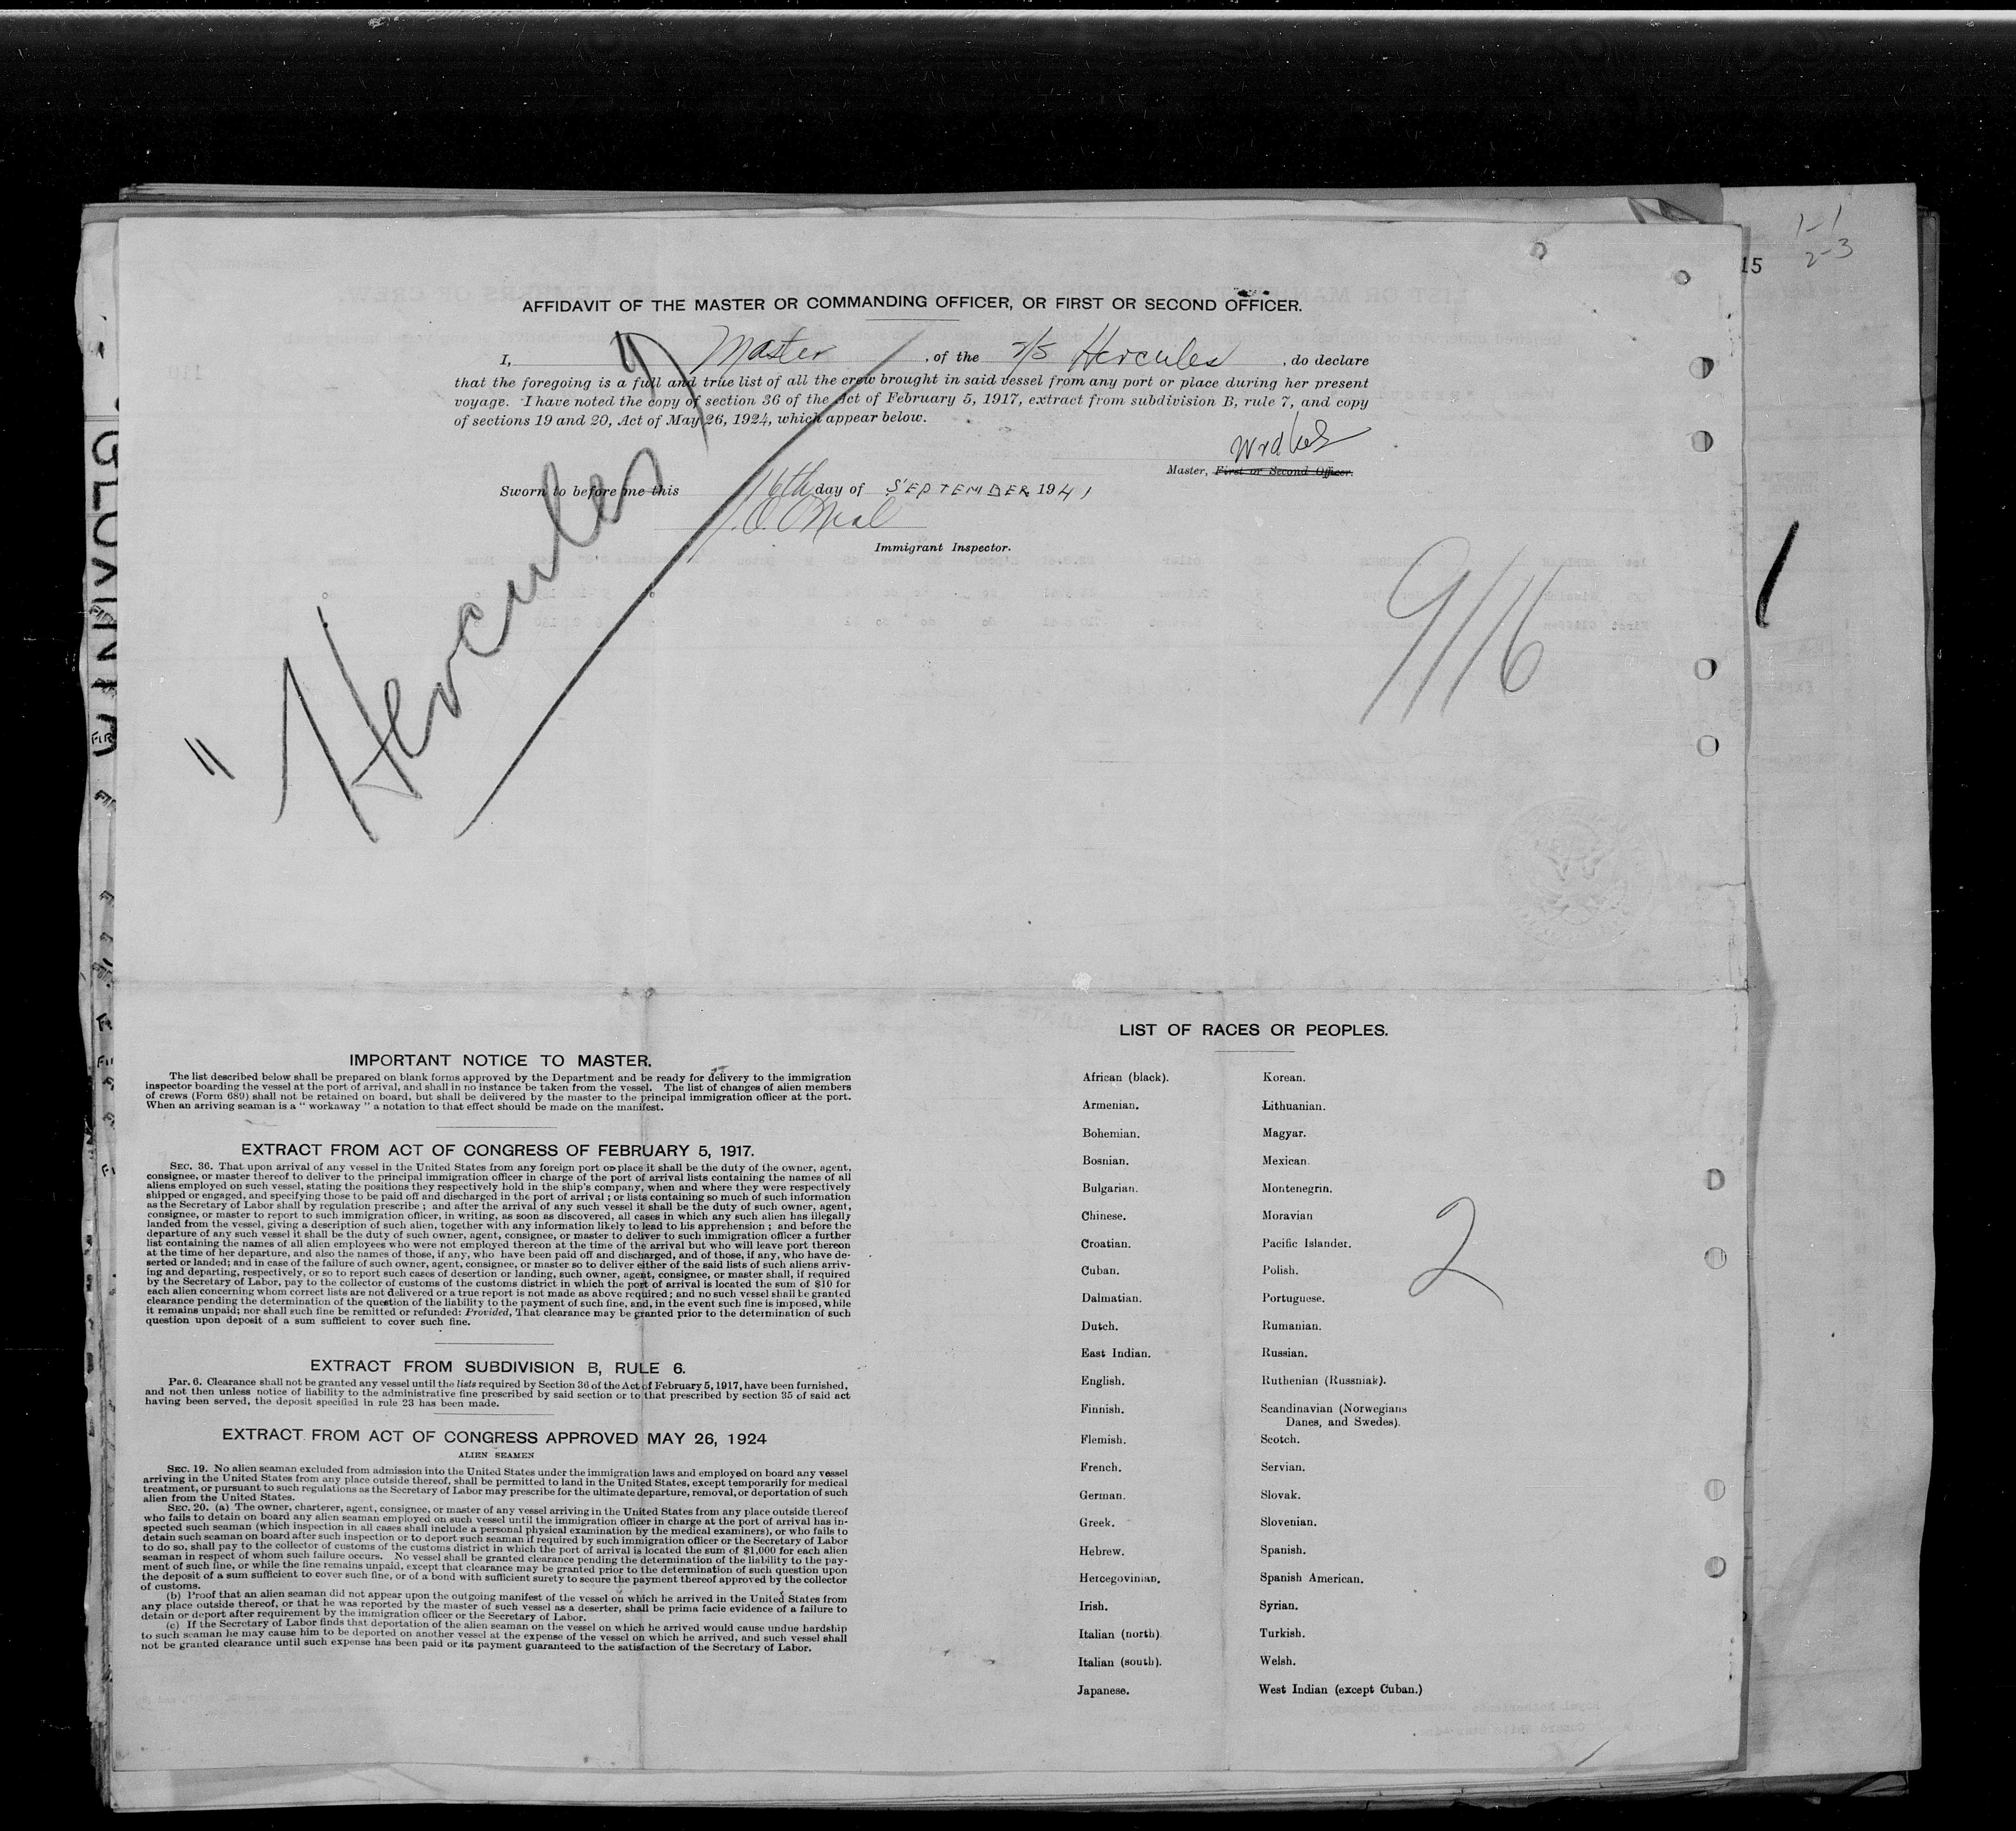 1-1
2-3
15
AFFIDAVIT OF THE MASTER OR COMMANDING OFFICER, OR FIRST OR SECOND OFFICER.
I, Master, of the S/S Hercules, do declare
that the foregoing is a full and true list of all the crew brought in said vessel from any port or place during her present
voyage. I have noted the copy of section 36 of the Act of February 5, 1917, extract from subdivision B, rule 7, and copy
of sections 19 and 20, Act of May 26, 1924, which appear below.
Master, First or Second Officer.
Sworn to before me this 16th day of SEPTEMBER 1941
Immigrant Inspector.
"Hercules"
9/16
IMPORTANT NOTICE TO MASTER.
The list described below shall be prepared on blank forms approved by the Department and be ready for delivery to the immigration
inspector boarding the vessel at the port of arrival, and shall in no instance be taken from the vessel. The list of changes of alien members
of crews (Form 689) shall not be retained on board, but shall be delivered by the master to the principal immigration officer at the port.
When an arriving seaman is a "workaway" a notation to that effect should be made on the manifest.
EXTRACT FROM ACT OF CONGRESS OF FEBRUARY 5, 1917.
SEC. 36. That upon arrival of any vessel in the United States from any foreign port or place it shall be the duty of the owner, agent,
consignee, or master thereof to deliver to the principal immigration officer in charge of the port of arrival lists containing the names of all
aliens employed on such vessel, stating the positions they respectively hold in the ship's company, when and where they were respectively
shipped or engaged, and specifying those to be paid off and discharged in the port of arrival; or lists containing so much of such information
as the Secretary of Labor shall by regulation prescribe; and after the arrival of any such vessel it shall be the duty of such owner, agent,
consignee, or master to report to such immigration officer, in writing, as soon as discovered, all cases in which any such alien has illegally
landed from the vessel, giving a description of such alien, together with any information likely to lead to his apprehension; and before the
departure of any such vessel it shall be the duty of such owner, agent, consignee, or master to deliver to such immigration officer a further
list containing the names of all alien employees who were not employed thereon at the time of the arrival but who will leave port thereon
at the time of her departure, and also the names of those, if any, who have been paid off and discharged, and of those, if any, who have de-
serted or landed; and in case of the failure of such owner, agent, consignee, or master so to deliver either of the said lists of such aliens arriv-
ing and departing, respectively, or so to report such cases of desertion or landing, such owner, agent, consignee, or master shall, if required
by the Secretary of Labor, pay to the collector of customs of the customs district in which the port of arrival is located the sum of $10 for
each alien concerning whom correct lists are not delivered or a true report is not made as above required; and no such vessel shall be granted
clearance pending the determination of the question of the liability to the payment of such fine, and, in the event such fine is imposed, while
it remains unpaid; nor shall such fine be remitted or refunded: Provided, That clearance may be granted prior to the determination of such
question upon deposit of a sum sufficient to cover such fine.
EXTRACT FROM SUBDIVISION B, RULE 6.
Par. 6. Clearance shall not be granted any vessel until the lists required by Section 36 of the Act of February 5, 1917, have been furnished,
and not then unless notice of liability to the administrative fine prescribed by said section or to that prescribed by section 35 of said act
having been served, the deposit specified in rule 23 has been made.
EXTRACT FROM ACT OF CONGRESS APPROVED MAY 26, 1924
ALIEN SEAMEN
SEC. 19. No alien seaman excluded from admission into the United States under the immigration laws and employed on board any vessel
arriving in the United States from any place outside thereof, shall be permitted to land in the United States, except temporarily for medical
treatment, or pursuant to such regulations as the Secretary of Labor may prescribe for the ultimate departure, removal, or deportation of such
alien from the United States.
SEC. 20. (a) The owner, charterer, agent, consignee, or master of any vessel arriving in the United States from any place outside thereof
who fails to detain on board any alien seaman employed on such vessel until the immigration officer in charge at the port of arrival has in-
spected such seaman (which inspection in all cases shall include a personal physical examination by the medical examiners), or who fails to
detain such seaman on board after such inspection or to deport such seaman if required by such immigration officer or the Secretary of Labor
to do so, shall pay to the collector of customs of the customs district in which the port of arrival is located the sum of $1,000 for each alien
seaman in respect of whom such failure occurs. No vessel shall be granted clearance pending the determination of the liability to the pay-
ment of such fine, or while the fine remains unpaid, except that clearance may be granted prior to the determination of such question upon
the deposit of a sum sufficient to cover such fine, or of a bond with sufficient surety to secure the payment thereof approved by the collector
of customs.
(b) Proof that an alien seaman did not appear upon the outgoing manifest of the vessel on which he arrived in the United States from
any place outside thereof, or that he was reported by the master of such vessel as a deserter, shall be prima facie evidence of a failure to
detain or deport after requirement by the immigration officer or the Secretary of Labor.
(c) If the Secretary of Labor finds that deportation of the alien seaman on the vessel on which he arrived would cause undue hardship
to such seaman he may cause him to be deported on another vessel at the expense of the vessel on which he arrived, and such vessel shall
not be granted clearance until such expense has been paid or its payment guaranteed to the satisfaction of the Secretary of Labor.
LIST OF RACES OR PEOPLES.
African (black).
Armenian.
Bohemian.
Bosnian.
Bulgarian.
Chinese.
Croatian.
Cuban.
Dalmatian.
Dutch.
East Indian.
English.
Finnish.
Flemish.
French.
German.
Greek.
Hebrew.
Hercegovinian.
Irish.
Italian (north)
Italian (south).
Japanese.
Korean.
Lithuanian.
Magyar.
Mexican
Montenegrin.
Moravian
Pacific Islander.
Polish.
Portuguese.
Rumanian.
Russian.
Ruthenian (Russniak).
Scandinavian (Norwegians
Danes, and Swedes).
Scotch.
Servian.
Slovak.
Slovenian.
Spanish.
Spanish American.
Syrian.
Turkish.
Welsh.
West Indian (except Cuban.)
2